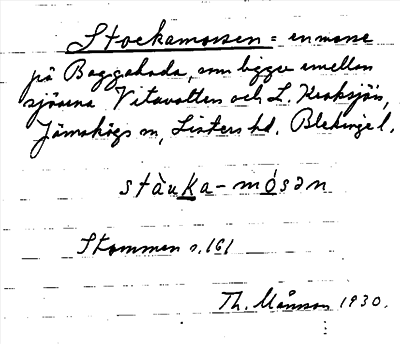 Stockamossen = en mosse
på Baggaboda, som ligger emellan
sjöarna Vitavatten och L. Kroksjön,
Jämshögs sn, Listers hd. Blekinge l.
stàuka-mósən
Stommen s. 161
Th. Månsson 1930.